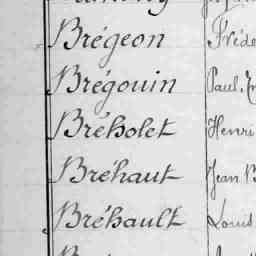 Brégeon Fréde
Brégouin Paul.
Bréholet Henri
Bréhaut Jean B
Bréhault Louis